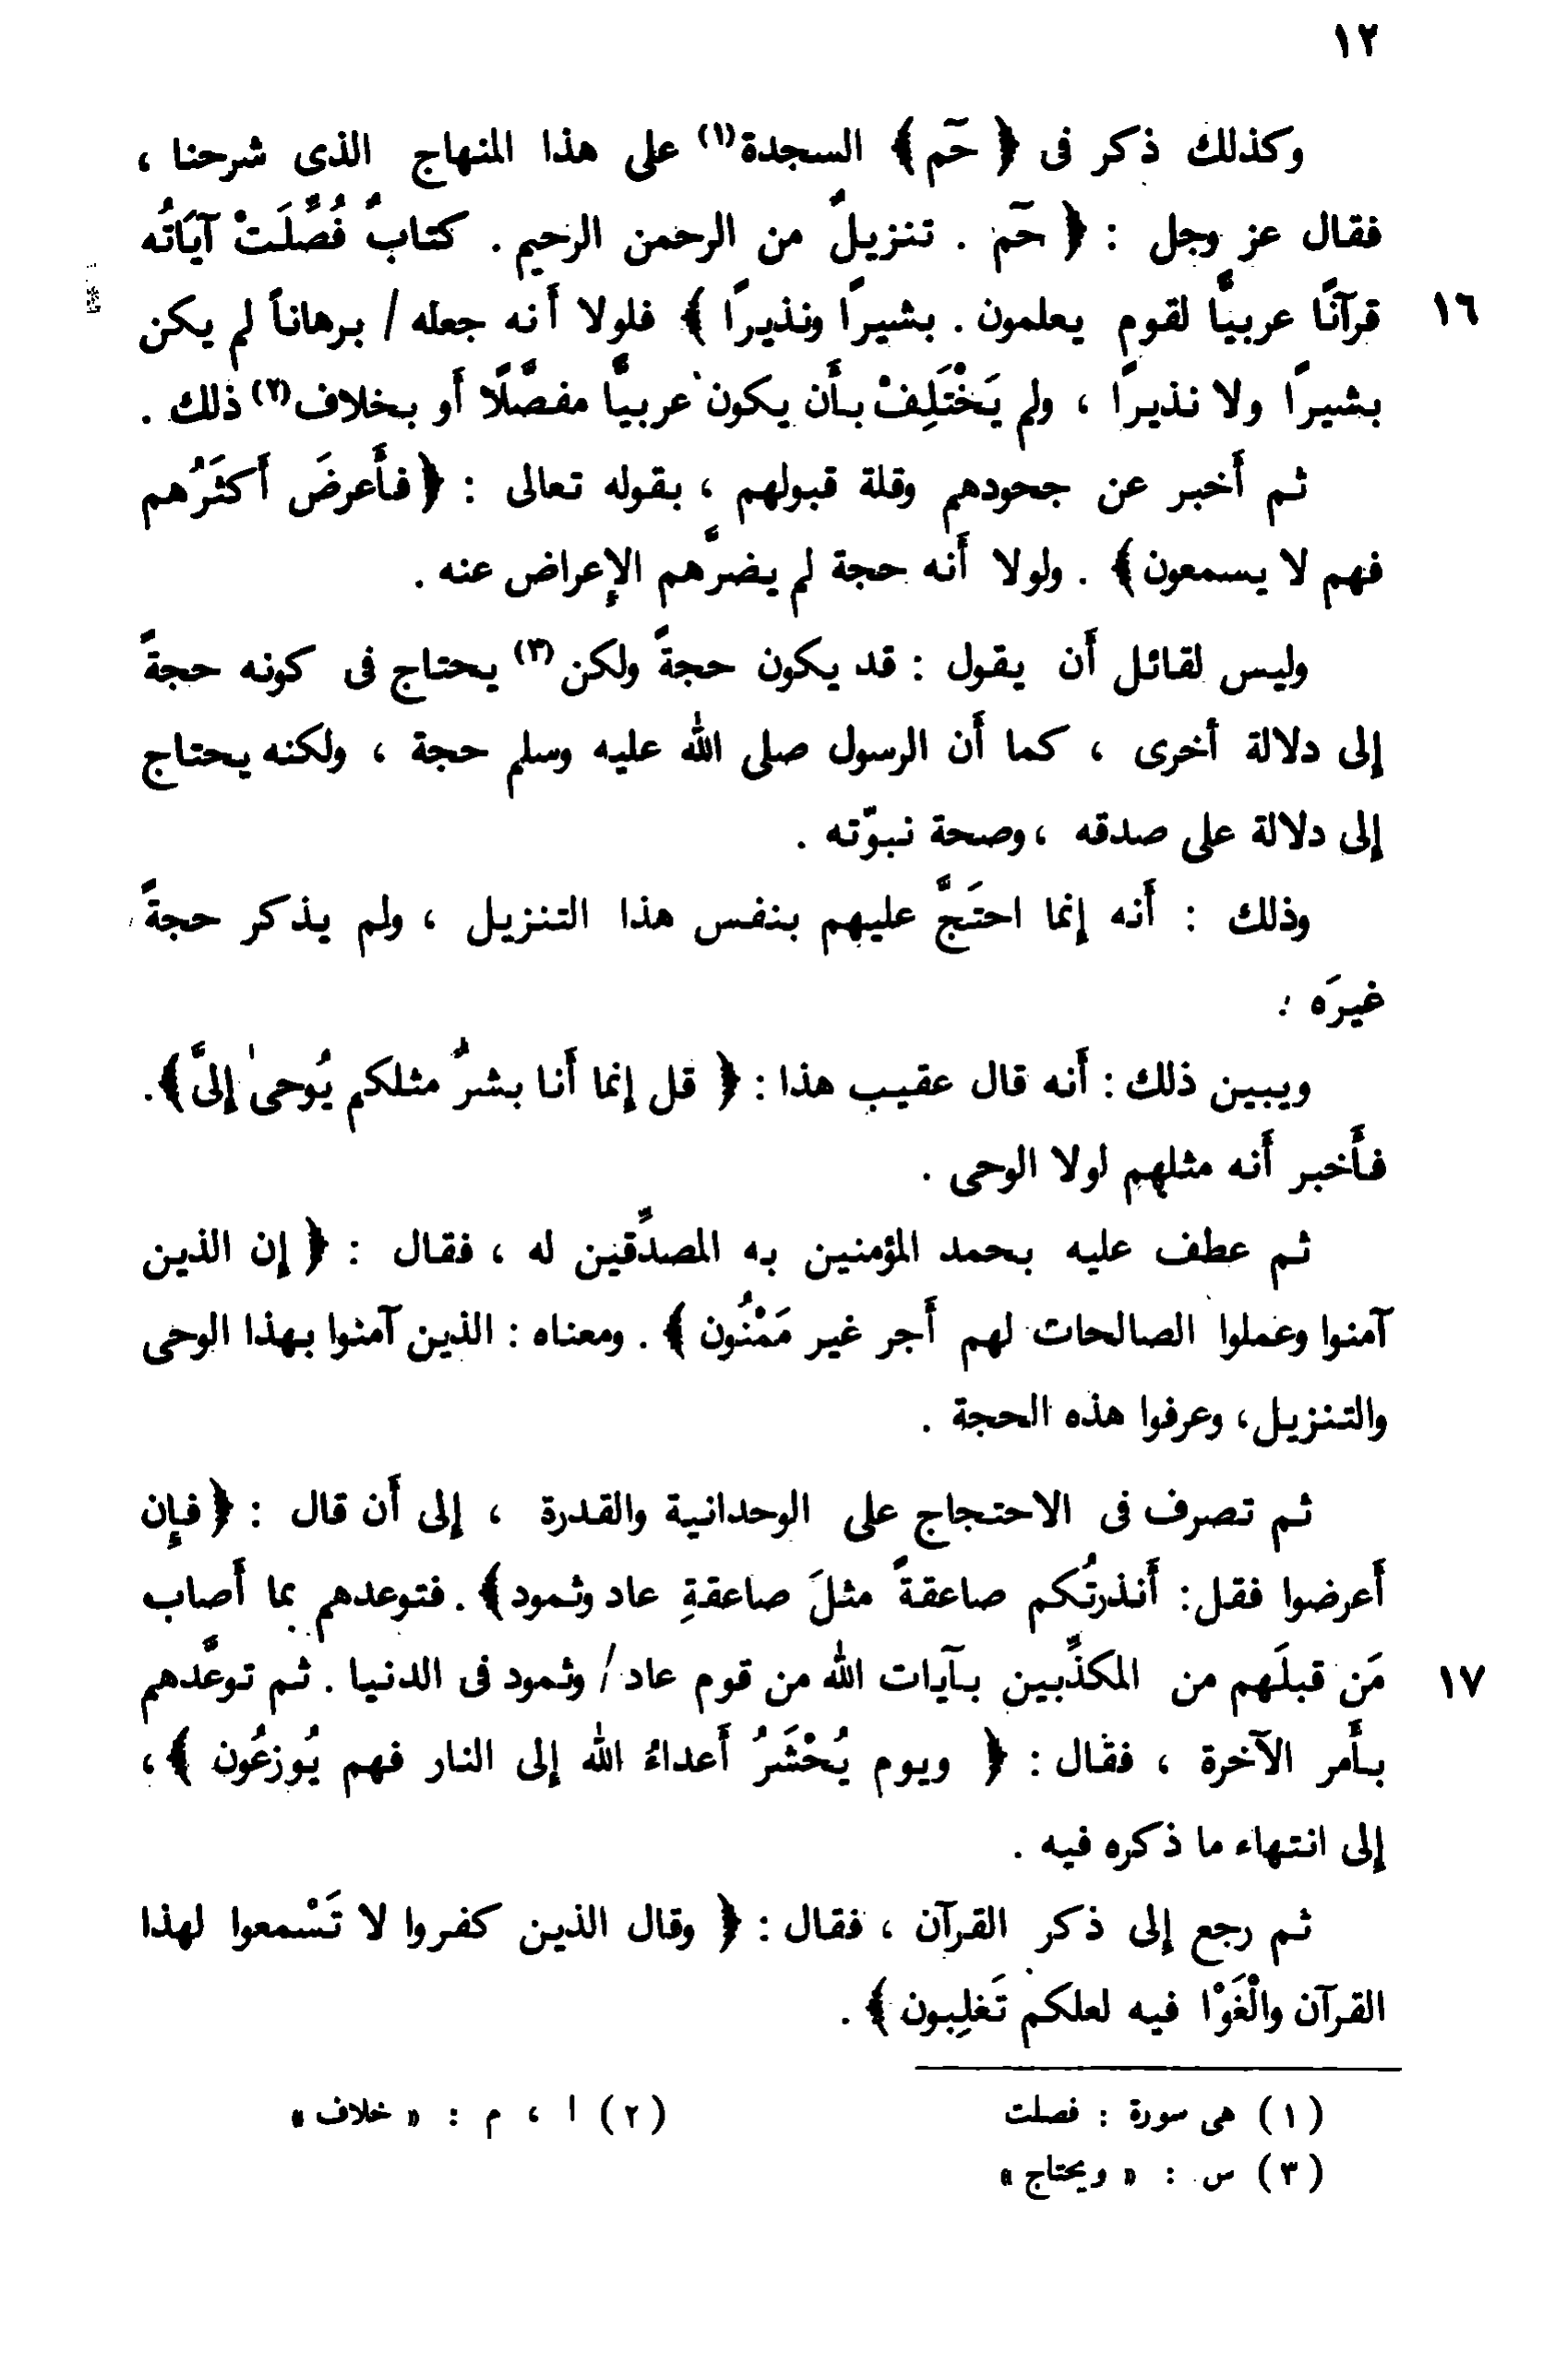 ١٢
وكذلك ذكر فى ﴿ حٓم ﴾ السجدة(١) على هذا المنهاج الذى شرحنا ،
فقال عز وجل : ﴿ حٓم . تنزيلٌ من الرحمن الرحيم . كتابٌ فُصِّلَتْ آيَاتُه
١٦ قرآنًا عربيًّا لقوم يعلمون . بشيرًا ونذيرًا ﴾ فلولا أَنه جعله / برهاناً لم يكن
بشيرًا ولا نذيرًا ، ولم يَخْتَلِفْ بأَن يكون عربيًّا مفصَّلًا أَو بخلاف(٢) ذلك .
ثم أَخبر عن جحودهم وقلة قبولهم ، بقوله تعالى : ﴿ فأَعرضَ أَكثَرُهم
فهم لا يسمعون ﴾ . ولولا أَنه حجة لم يضرَّهم الإِعراض عنه .
وليس لقائل أَن يقول : قد يكون حجةً ولكن(٣) يحتاج فى كونه حجةً
إلى دلالة أخرى ، كما أَن الرسول صلى الله عليه وسلم حجة ، ولكنه يحتاج
إلى دلالة على صدقه ، وصحة نبوّته .
وذلك : أَنه إنما احتَجَّ عليهم بنفس هذا التنزيل ، ولم يذكر حجةً
غيرَه ؛
ويبين ذلك : أَنه قال عقيب هذا : ﴿ قل إنما أَنا بشرٌ مثلكم يُوحىٰ إلىَّ ﴾.
فأَخبر أَنه مثلهم لولا الوحى .
ثم عطف عليه بحمد المؤمنين به المصدِّقين له ، فقال : ﴿ إن الذين
آمنوا وعملوا الصالحات لهم أَجر غير مَمْنُون ﴾ . ومعناه : الذين آمنوا بهذا الوحى
والتنزيل، وعرفوا هذه الحجة .
ثم تصرف فى الاحتجاج على الوحدانية والقدرة ، إلى أَن قال : ﴿ فإِن
أَعرضوا فقل : أَنذرتُكم صاعقةً مثلَ صاعقةِ عاد وثمود ﴾ . فتوعدهم بما أَصاب
١٧ مَن قبلَهم من المكذِّبين بآيات الله من قوم عاد / وثمود فى الدنيا . ثم توعَّدهم
بأَمر الآخرة ، فقال : ﴿ ويوم يُحْشَرُ أَعداءُ الله إلى النار فهم يُوزعُون ﴾ ،
إلى انتهاء ما ذكره فيه .
ثم رجع إلى ذكر القرآن ، فقال : ﴿ وقال الذين كفروا لا تَسْمعوا لهذا
القرآن والْغَوْا فيه لعلكم تَغلِبون ﴾ .
(١) هى سورة : فصلت (٢) ا ، م : « خلاف »
(٣) س : « ويحتاج »